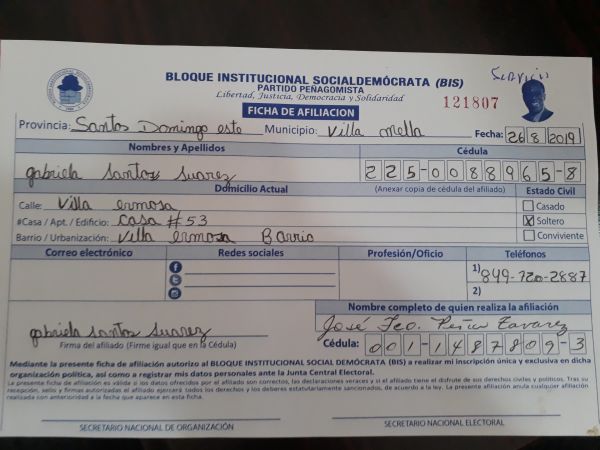 BLOQUE INSTITUCIONAL SOCIALDEMÓCRATA (BIS)
PARTIDO PEÑAGOMISTA
Libertad, Justicia, Democracia y Solidaridad
Servicio
121807
FICHA DE AFILIACION
Provincia: Santos Domingo este Municipio: Villa mella Fecha: 26 8 2019
Nombres y Apellidos Cédula
gabriela santos suarez 225-0088965-8
Domicilio Actual (Anexar copia de cédula del afiliado) Estado Civil
Calle: Villa ermosa Casado
#Casa / Apt. / Edificio: casa #53 X Soltero
Barrio / Urbanización: Villa ermosa Barrio Conviviente
Correo electrónico Redes sociales Profesión/Oficio Teléfonos
1) 849-720-2887
2)
Nombre completo de quien realiza la afiliación
gabriela santos suarez José Fco. Peña Tavarez
Firma del afiliado (Firme igual que en la Cédula) Cédula: 001-1487809-3
Mediante la presente ficha de afiliación autorizo al BLOQUE INSTITUCIONAL SOCIAL DEMÓCRATA (BIS) a realizar mi inscripción única y exclusiva en dicha
organización política, así como a registrar mis datos personales ante la Junta Central Electoral.
La presente ficha de afiliación es válida o los datos ofrecidos por el afiliado son correctos, las declaraciones veraces y si el afiliado tiene el disfrute de sus derechos civiles y políticos. Tras su
recepción, sello y firmas autorizadas el afiliado ejercerá todos los derechos y los deberes estatutariamente sancionados, de acuerdo a la ley. La presente afiliación anula cualquier afiliación
realizada con anterioridad a la fecha que aparece en esta ficha.
SECRETARIO NACIONAL DE ORGANIZACIÓN SECRETARIO NACIONAL ELECTORAL